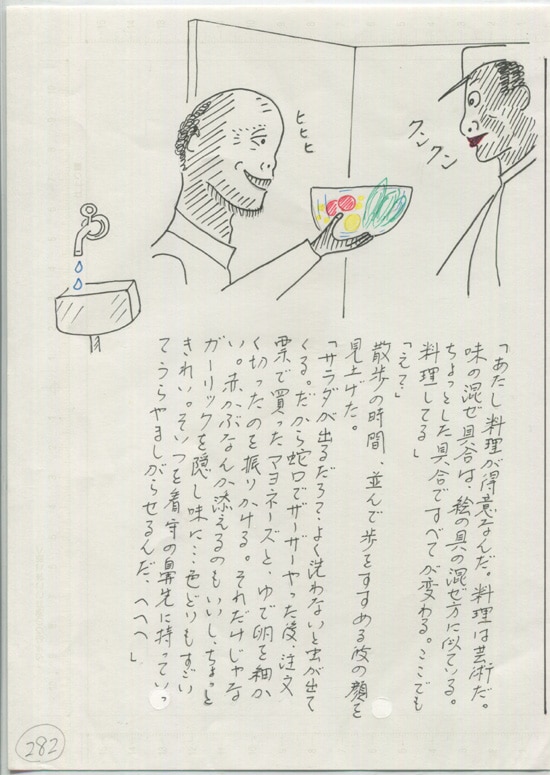 ヒヒヒ
クンクン
「あたし料理が得意なんだ。料理は芸術だ。
味の混ぜ具合は、絵の具の混ぜ方に似ている。
ちょっとした具合ですべてが変わる。ここでも
料理してる」
「え？」
散歩の時間、並んで歩をすすめる彼の顔を
見上げた。
「サラダが出るだろ？よく洗わないと虫が出て
くる。だから蛇口でザーザーやった後、注文
票で買ったマヨネーズと、ゆで卵を細か
く切ったのを振りかける。それだけじゃな
い。赤かぶなんか添えるのもいいし、ちょっと
ガーリックを隠し味に…色どりもすごい
きれい。そいつを看守の鼻先に持っていっ
てうらやましがらせるんだ、へへへ」
282